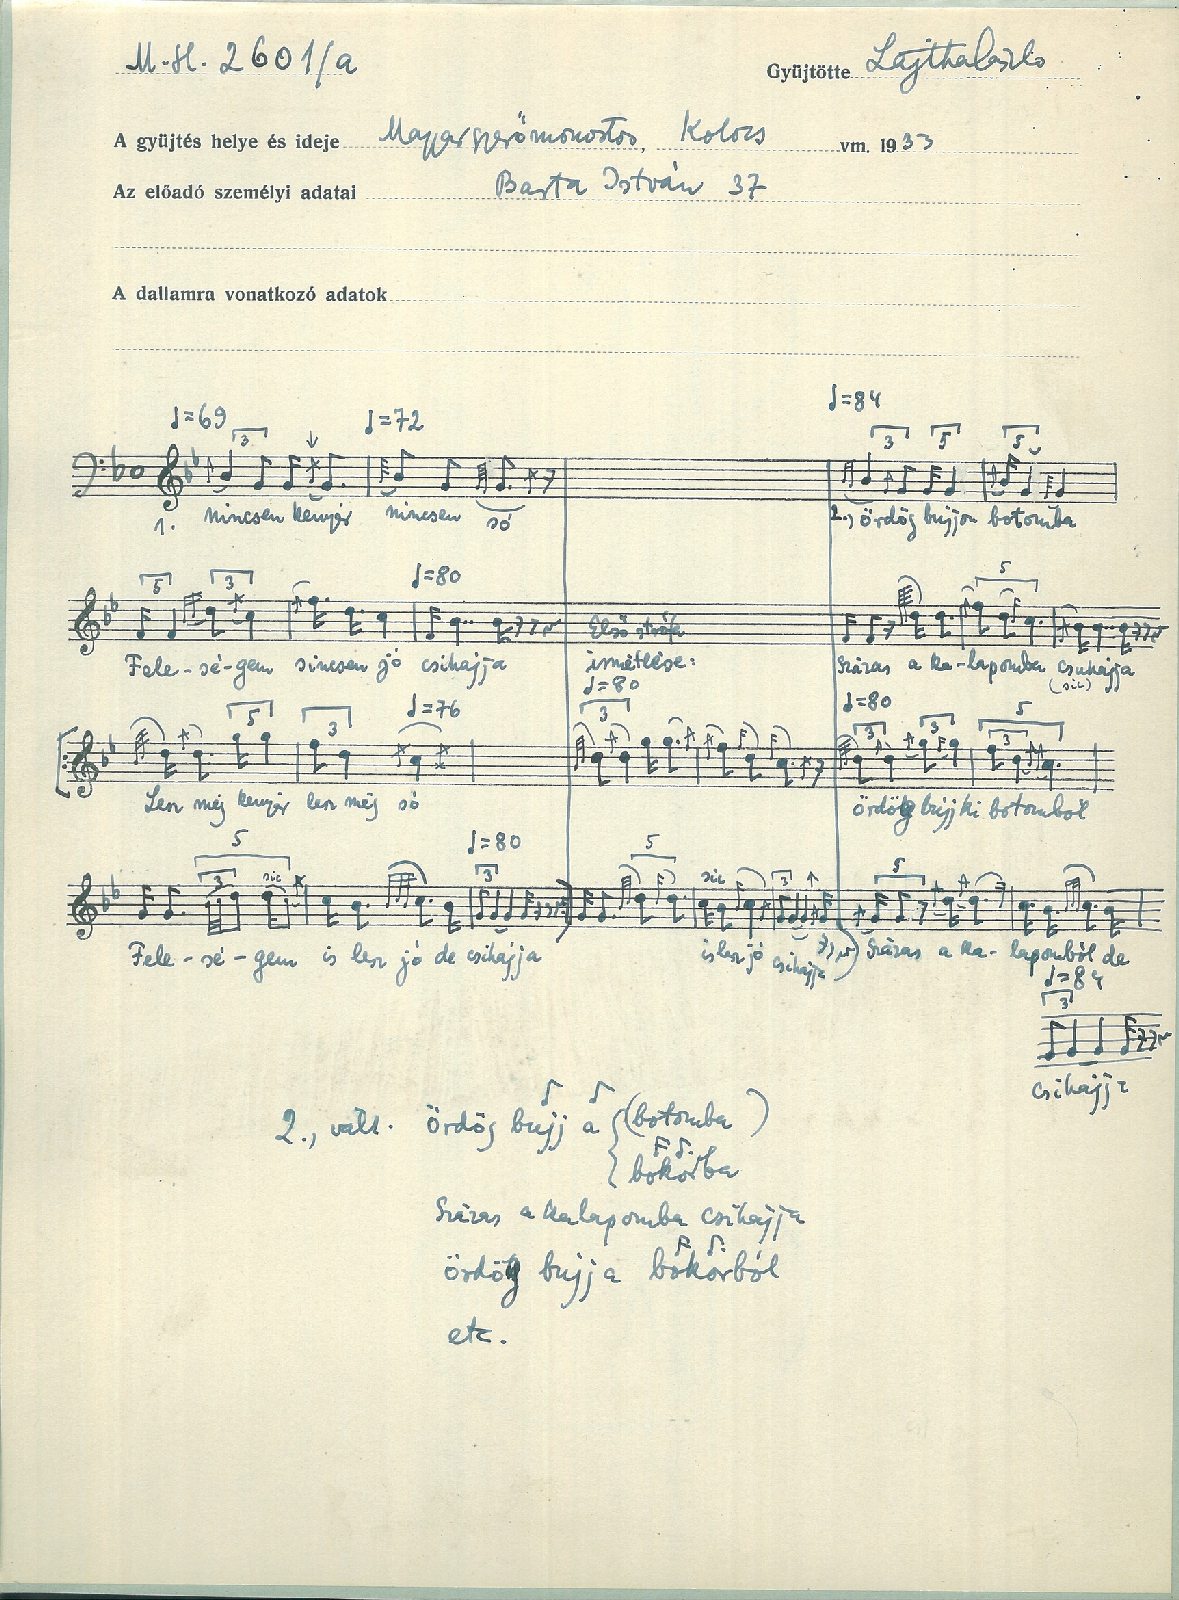 M.H. 2601/a
Gyüjtötte Lajtha László
A gyüjtés helye és ideje Magyargyerőmonostor, Kolozs vm. 1933
Az előadó személyi adatai Barta István 37
A dallamra vonatkozó adatok
♩=69 ♩=72 ♩=84
3 3 5 5
1. Nincsen kenyér nincsen só 2., Ördög bujjon botomba
♩=80
5 3 5
Fele-sé-gem sincsen jó csihajja Első strófa Száraz a ka-lapomba csuhajja
ismétlése: (sic)
♩=76 ♩=80 ♩=80
5 3 3 3 3 5 3
Lesz még kenyér lesz még só Ördög bújj ki botomból
♩=80
5 3 sic 3 5 sic 3 5
Fele-sé-gem is lesz jó de csihajja is lesz jó csihajja Száraz a ka-lapomból de
♩=84
3
csihajja
2., vált. ördög bujj a (botomba)
bokorba
Száraz a kalapomba csihajja
ördög bujj a bokorból
etc.